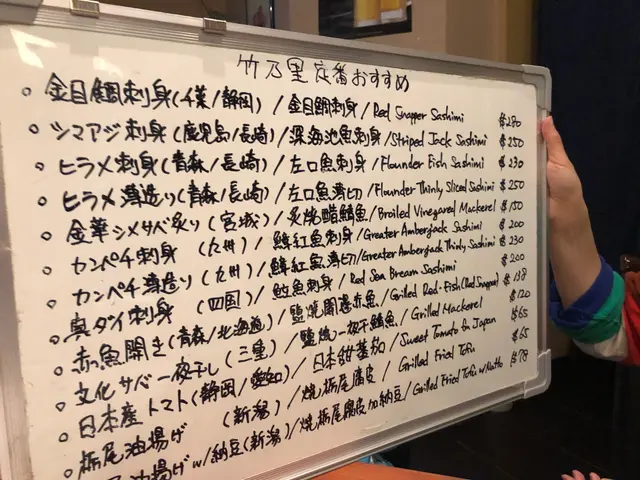 竹乃里定番おすすめ
○ 金目鯛刺身(千葉/静岡) / 金目鯛刺身 / Red Snapper Sashimi $280
○ シマアジ刺身(鹿児島/長崎) / 深海池魚刺身 / Striped Jack Sashimi $250
○ ヒラメ刺身(青森/長崎) / 左口魚刺身 / Flounder Fish Sashimi $230
○ ヒラメ薄造り(青森/長崎) / 左口魚薄切 / Flounder Thinly Sliced Sashimi $250
○ 金華シメサバ炙り(宮城) / 炙焼醋鯖魚 / Broiled Vinegared Mackerel $150
○ カンペチ刺身 (九州) / 鱆紅魚刺身 / Greater Amberjack Sashimi $200
○ カンペチ薄造り (九州) / 鱆紅魚薄切 / Greater Amberjack Thinly Sashimi $230
○ 真ダイ刺身 (四国) / 鮫魚刺身 / Red Sea Bream Sashimi $200
○ 赤魚開き(青森/北海道) / 鹽焼開邊赤魚 / Grilled Red-Fish(Red Snapper) $138
○ 文化サバ一夜干し(三重) / 鹽焼一夜干鯖魚 / Grilled Mackerel $120
○ 日本産トマト(静岡/愛知) / 日本甜蕃茄 / Sweet Tomato in Japan $65
○ 栃尾油揚げ (新潟) / 焼栃尾腐皮 / Grilled Fried Tofu $65
油揚げw/納豆(新潟) / 焼栃尾腐皮加納豆 / Grilled Fried Tofu w/Natto $78